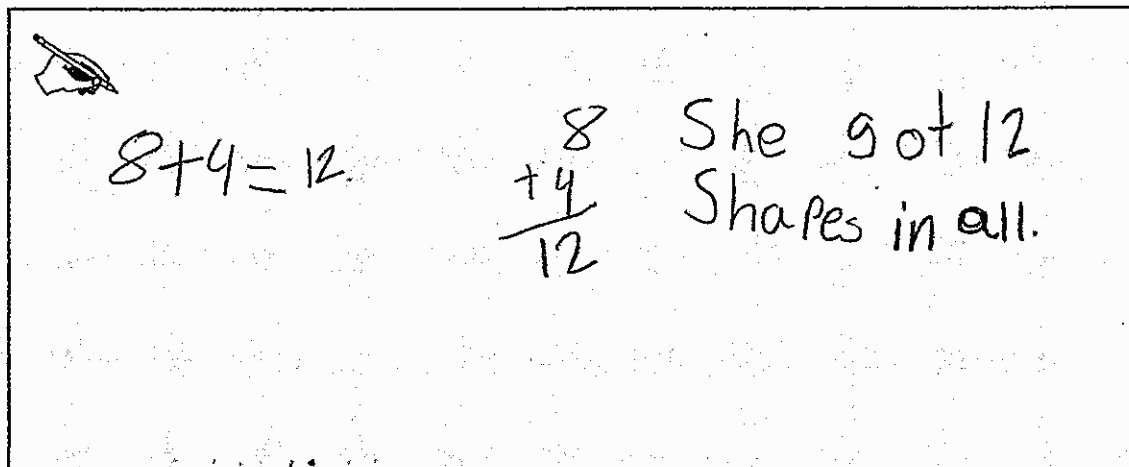 8+4=12.
8
+4
12
She got 12
Shapes in all.